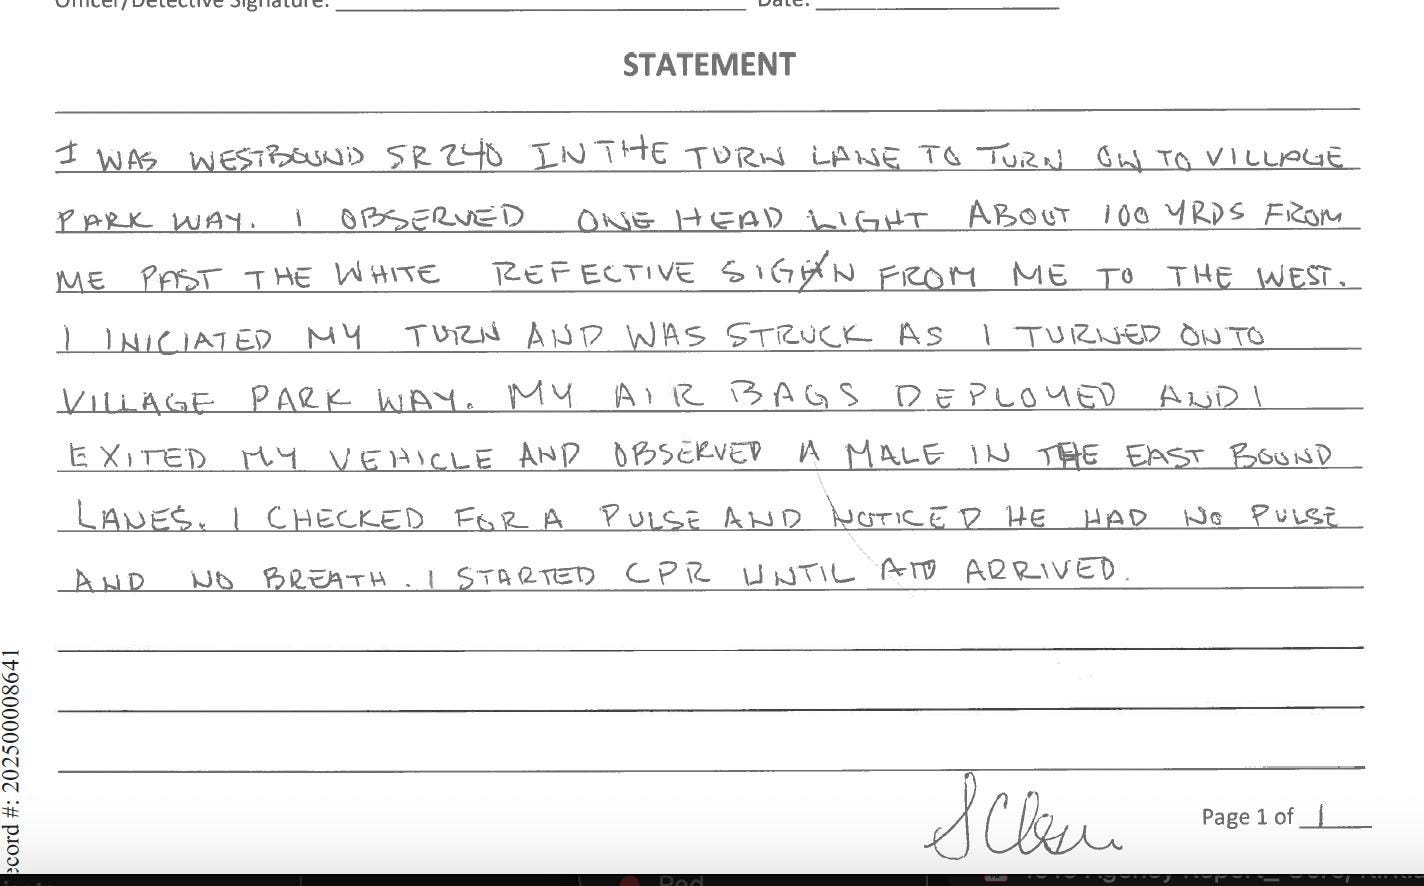 Officer/Detective Signature: Date:
STATEMENT
I WAS WESTBOUND SR 240 IN THE TURN LANE TO TURN ON TO VILLAGE
PARK WAY. I OBSERVED ONE HEAD LIGHT ABOUT 100 YRDS FROM
ME PAST THE WHITE REFECTIVE SIGN FROM ME TO THE WEST.
I INICIATED MY TURN AND WAS STRUCK AS I TURNED ONTO
VILLAGE PARK WAY. MY AIR BAGS DEPLOYED AND I
EXITED MY VEHICLE AND OBSERVED A MALE IN THE EAST BOUND
LANES. I CHECKED FOR A PULSE AND NOTICED HE HAD NO PULSE
AND NO BREATH. I STARTED CPR UNTIL AID ARRIVED.
Page 1 of 1
ecord #: 202500008641